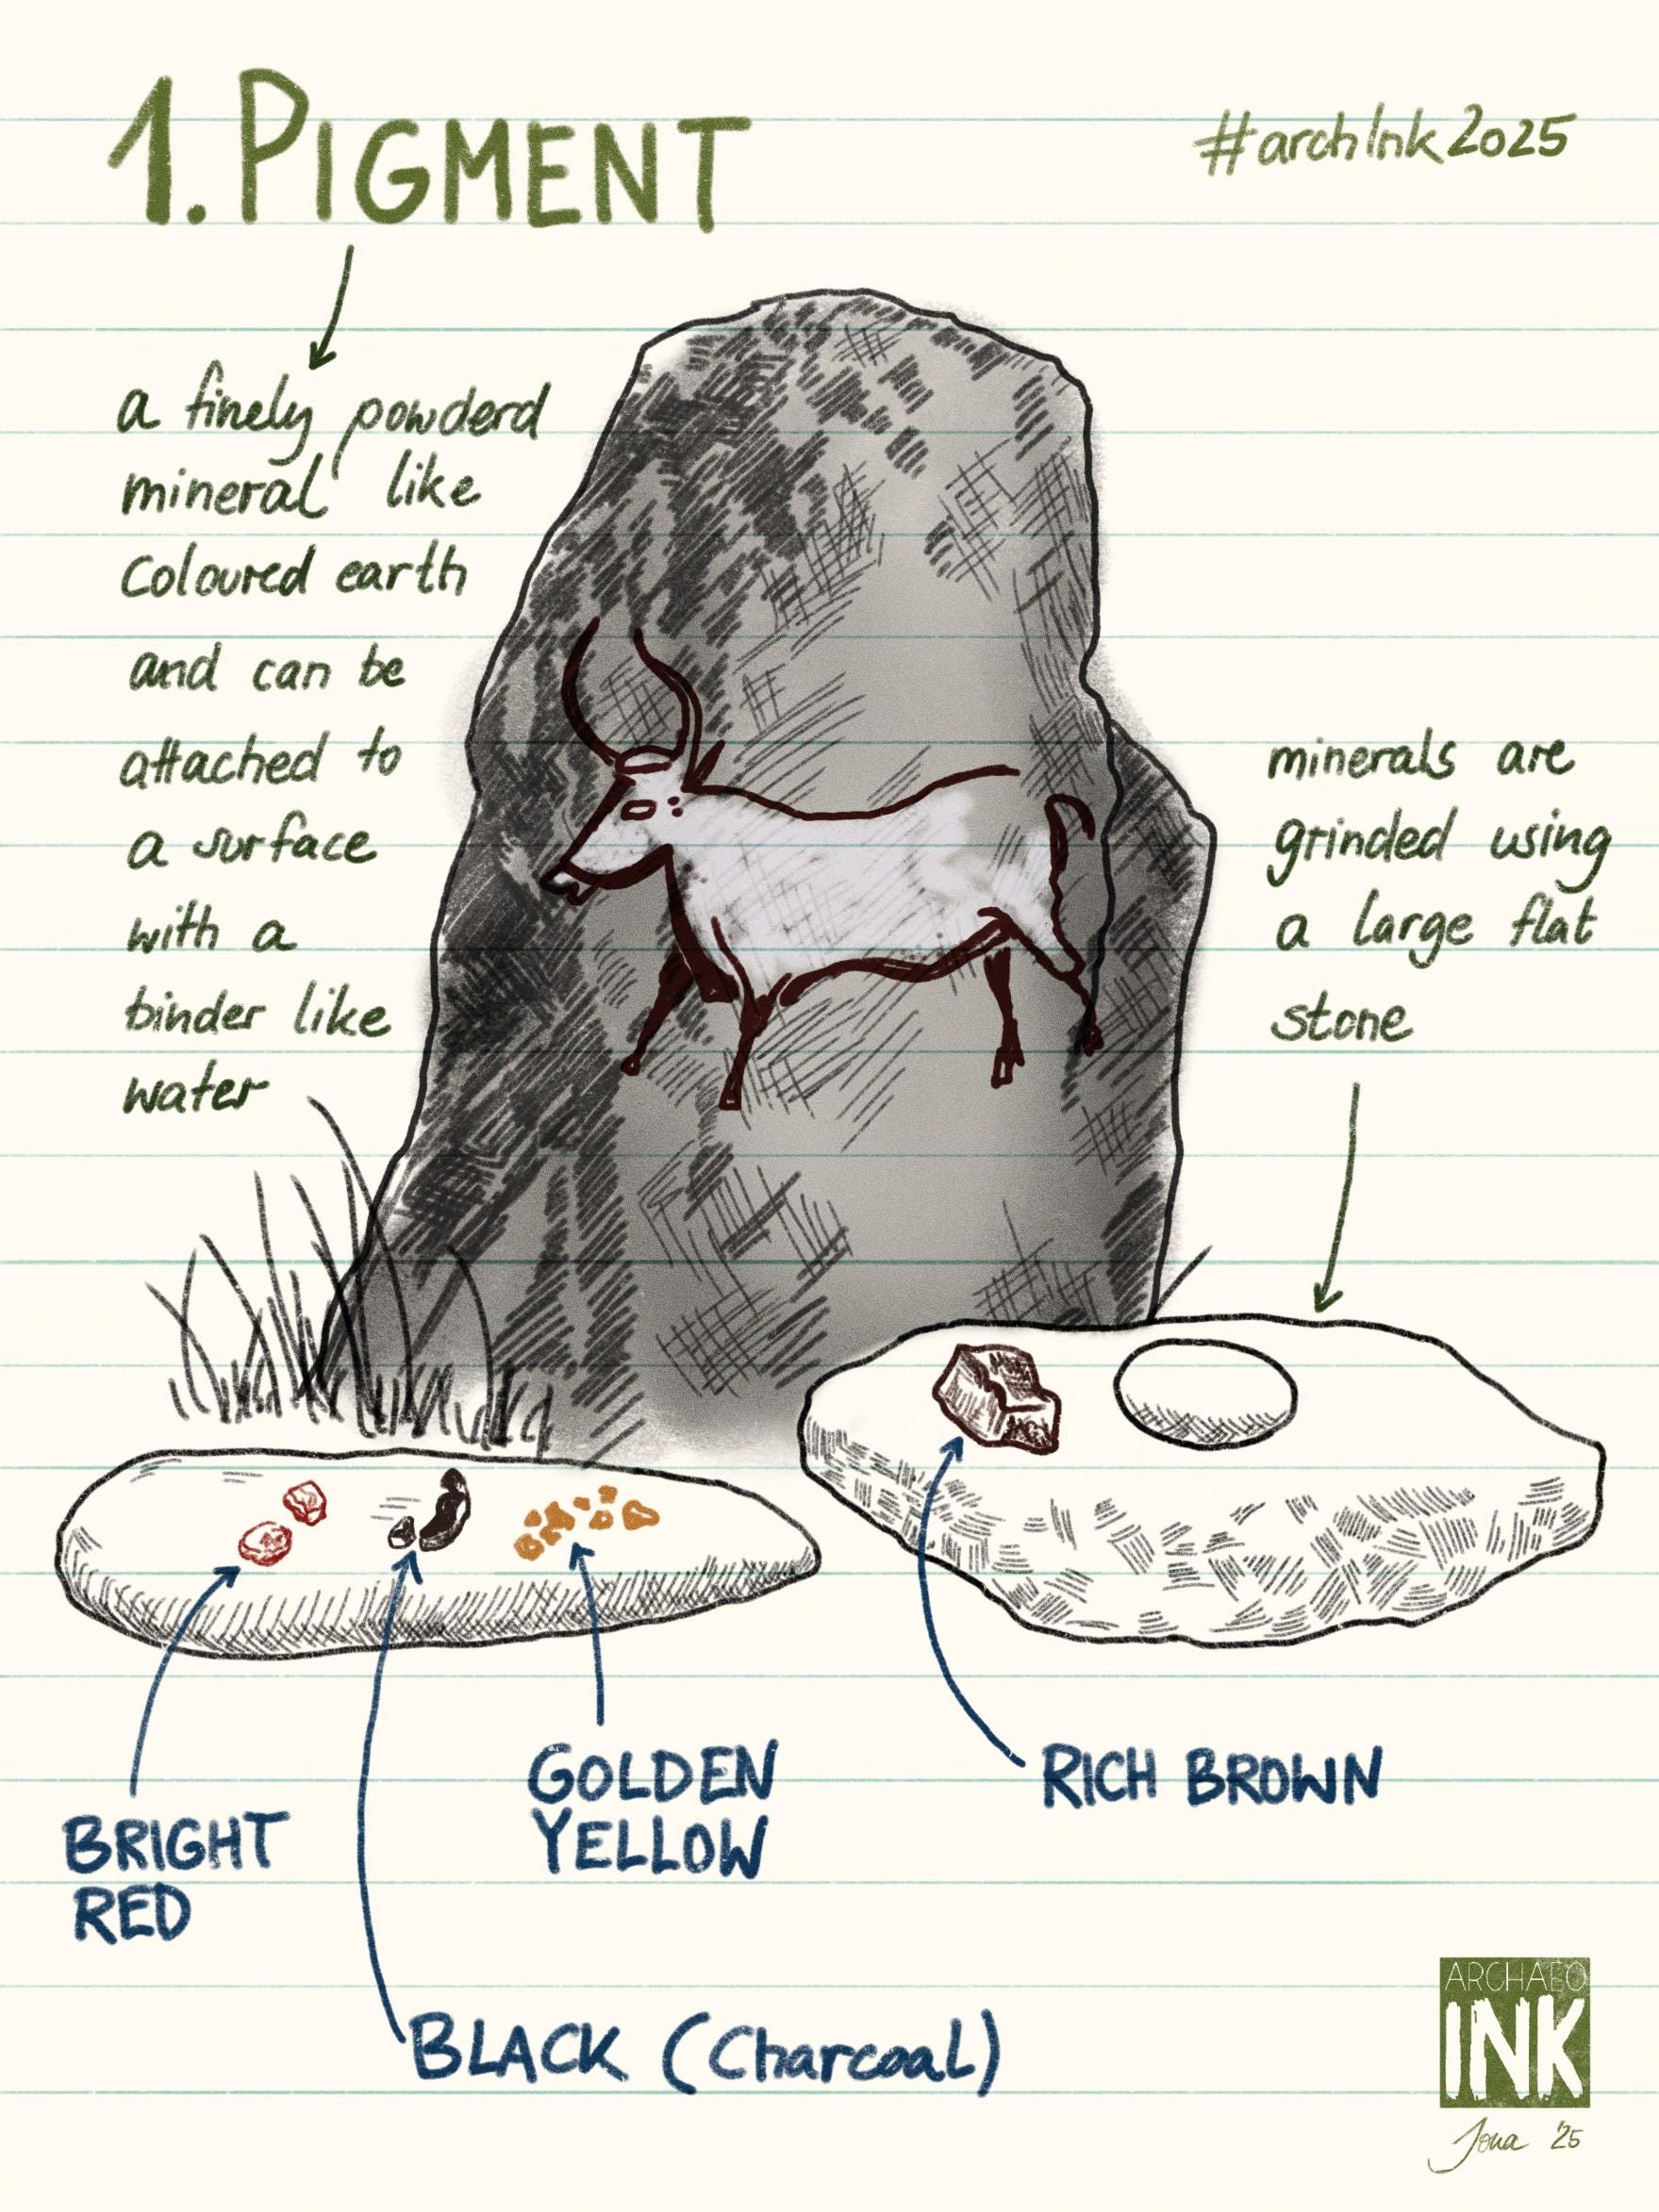 1. PIGMENT
#archInk2025
a finely powderd
mineral like
coloured earth
and can be
attached to
a surface
with a
binder like
water
minerals are
grinded using
a large flat
stone
GOLDEN
YELLOW
RICH BROWN
BRIGHT
RED
BLACK (Charcoal)
ARCHAEO
INK
Jona '25